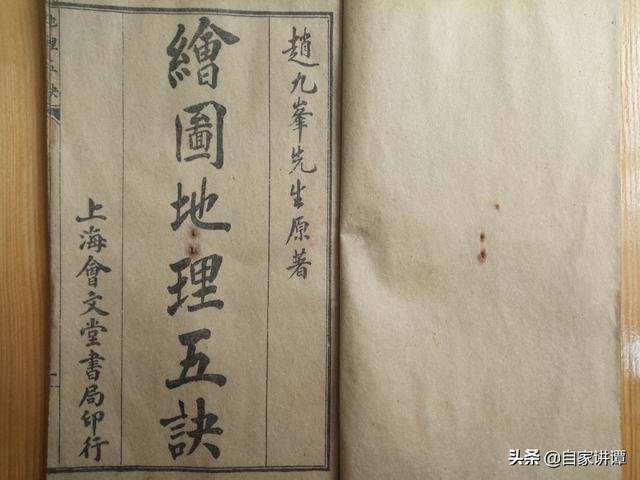 趙九峯先生原著
繪圖地理五訣
上海會文堂書局印行
地理五訣
一
头条 @自家讲谭